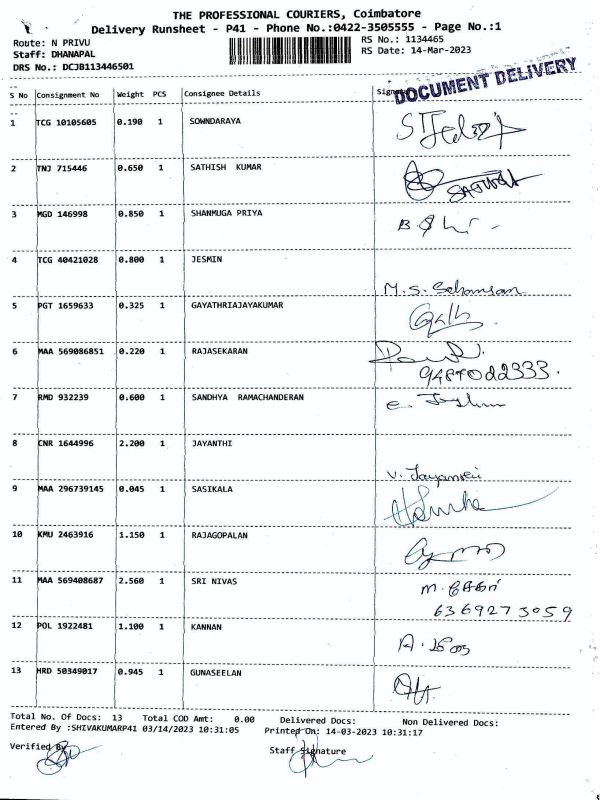 THE PROFESSIONAL COURIERS, Coimbatore
Delivery Runsheet - P41 - Phone No.:0422-3505555 - Page No.:1
Route: N PRIVU
RS No.: 1134465
Staff: DHANAPAL
RS Date: 14-Mar-2023
DRS No.: DCJB113446501
DOCUMENT DELIVERY
S No Consignment No Weight PCS Consignee Details
1 TCG 10105605 0.190 1 SOWNDARAYA
2 TNJ 715446 0.650 1 SATHISH KUMAR
3 MGD 146998 0.850 1 SHANMUGA PRIYA
4 TCG 40421028 0.800 1 JESMIN
5 PGT 1659633 0.325 1 GAYATHRIAJAYAKUMAR
6 MAA 569086851 0.220 1 RAJASEKARAN
7 RMD 932239 0.600 1 SANDHYA RAMACHANDERAN
8 CNR 1644996 2.200 1 JAYANTHI
9 MAA 296739145 0.045 1 SASIKALA
10 KMU 2463916 1.150 1 RAJAGOPALAN
11 MAA 569408687 2.560 1 SRI NIVAS
6369273059
12 POL 1922481 1.100 1 KANNAN
13 HRD 50349017 0.945 1 GUNASEELAN
Total No. Of Docs: 13 Total COD Amt: 0.00 Delivered Docs: Non Delivered Docs:
Entered By :SHIVAKUMARP41 03/14/2023 10:31:05 Printed On: 14-03-2023 10:31:17
Verified By Staff Signature